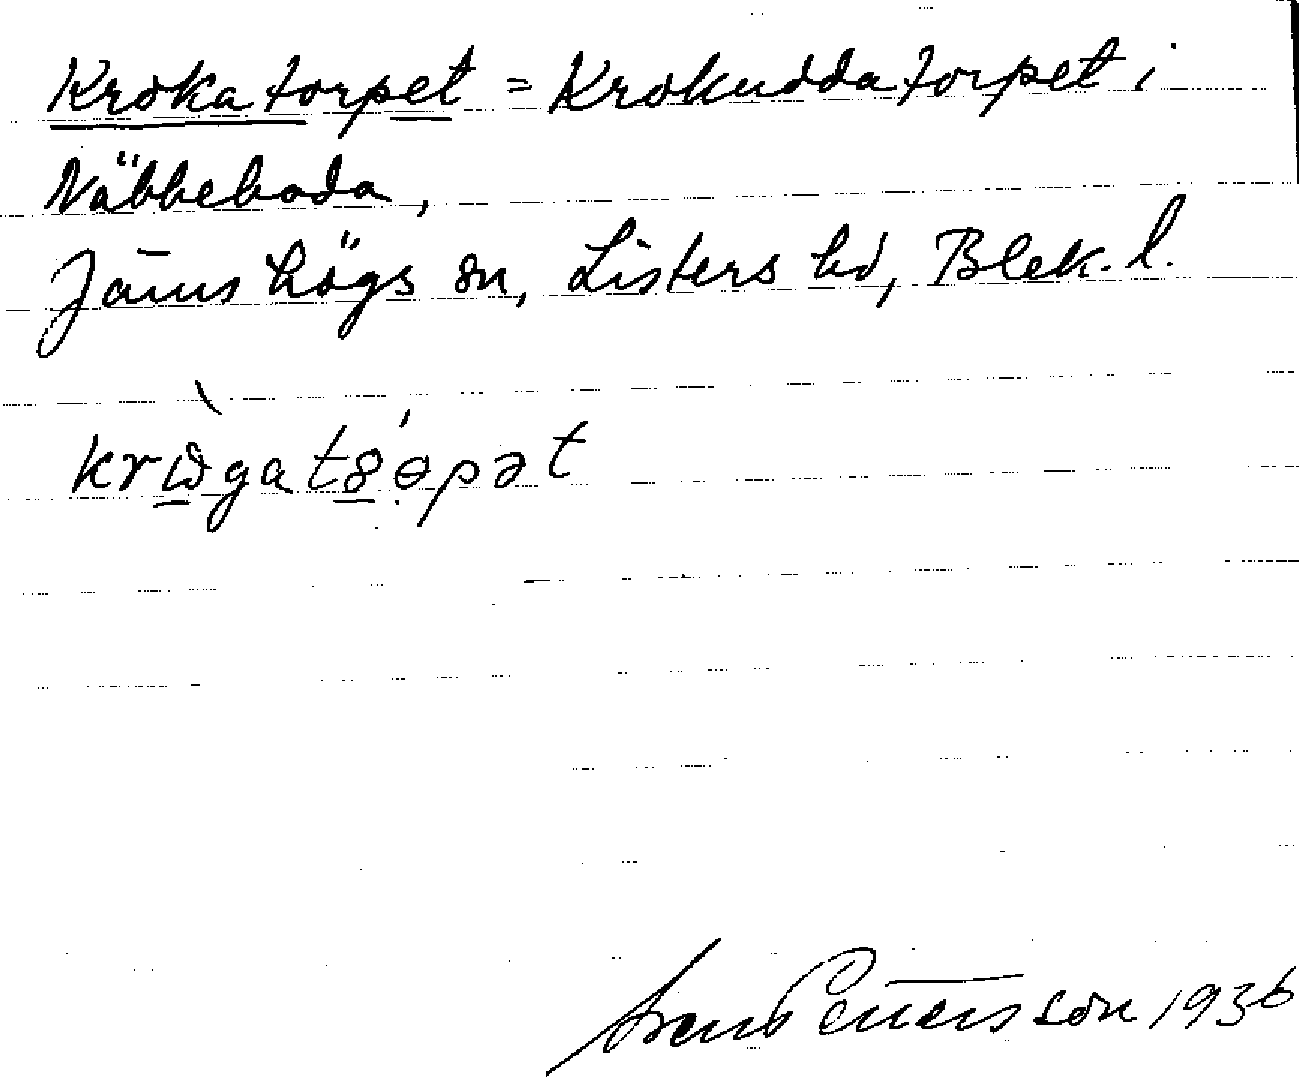 Krokatorpet = Krokuddatorpet i
Näbbeboda,
Jämshögs sn, Listers hd, Blek. l.
Sven Pettersson 1936